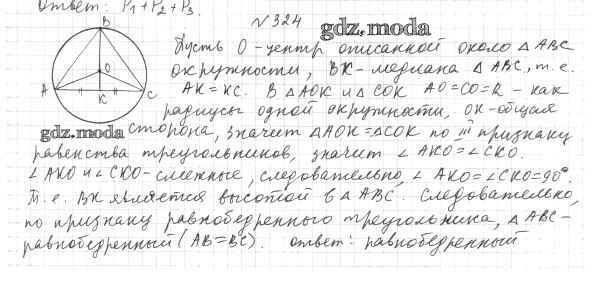 Ответ: P₁+P₂+P₃.
№324
gdz.moda
B
O
A
K
C
Пусть О-центр описанной около △ABC
окружности, BK-медиана △ABC, т.е.
AK=KC. В △AOK и △COK AO=CO=R - как
радиусы одной окружности, OK-общая
gdz.moda
сторона, значит △AOK=△COK по III признаку
равенства треугольников, значит ∠AKO=∠CKO.
∠AKO и ∠CKO-смежные, следовательно, ∠AKO=∠CKO=90°.
Т.е. BK является высотой в △ABC. Следовательно,
по признаку равнобедренного треугольника, △ABC-
равнобедренный (AB=BC). Ответ: равнобедренный